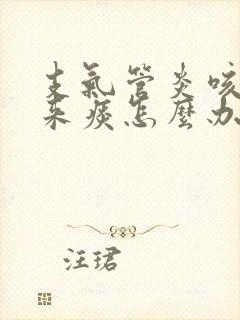 支氣管炎咳
來痰怎麼办
汪珺